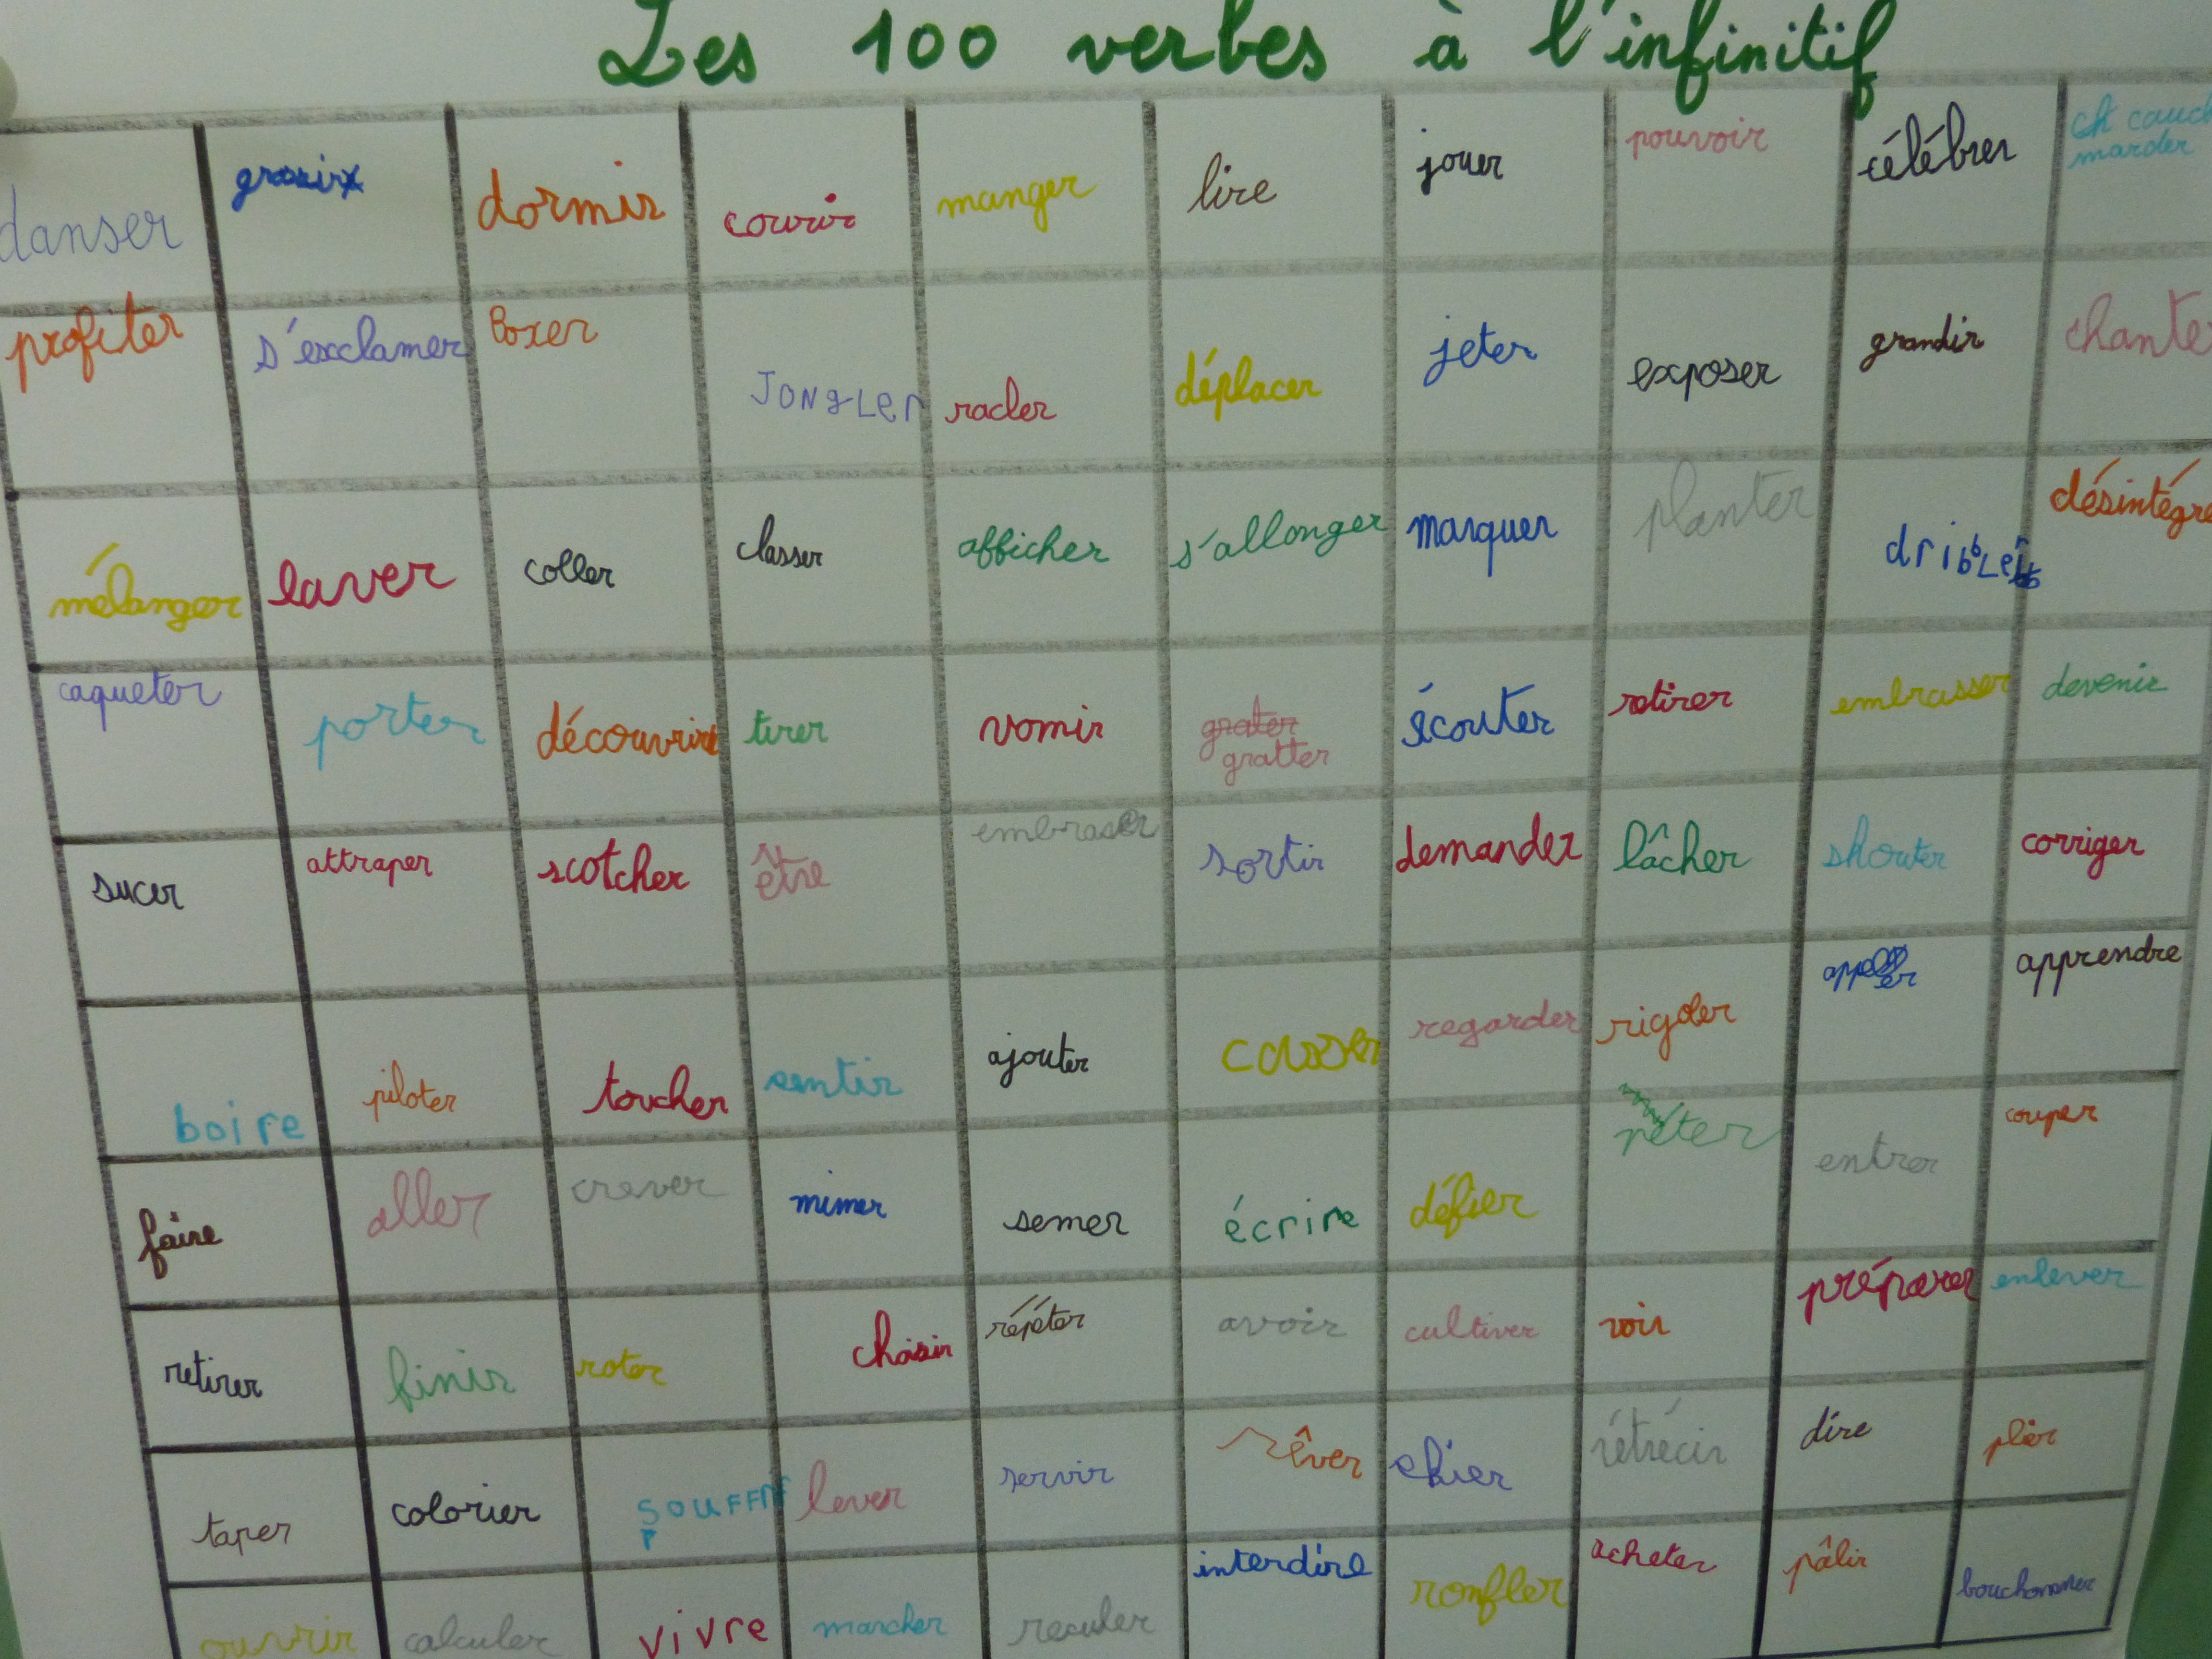 Les 100 verbes à l'infinitif
danser grossir dormir courir manger lire jouer pouvoir célébrer cauch
marder
profiter s'exclamer boxer JONGLEr racler déplacer jeter exposer grandir chante
mélanger laver coller classer afficher s'allonger marquer planter dribbler désintégre
caqueter porter découvrir tirer vomir grater écouter retirer embrasser devenir
gratter
sucer attraper scotcher être embraser sortir demander lâcher shouter corriger
boire piloter toucher sentir ajouter casser regarder rigoler appeler apprendre
faire aller crever mimer semer écrire défier péter entrer couper
retirer finir roter choisir répéter avoir cultiver voir préparer enlever
taper colorier souffrir lever servir rêver chier rétrécir dire plier
ouvrir calculer vivre marcher reculer interdire ronfler acheter pâlir bouchonner